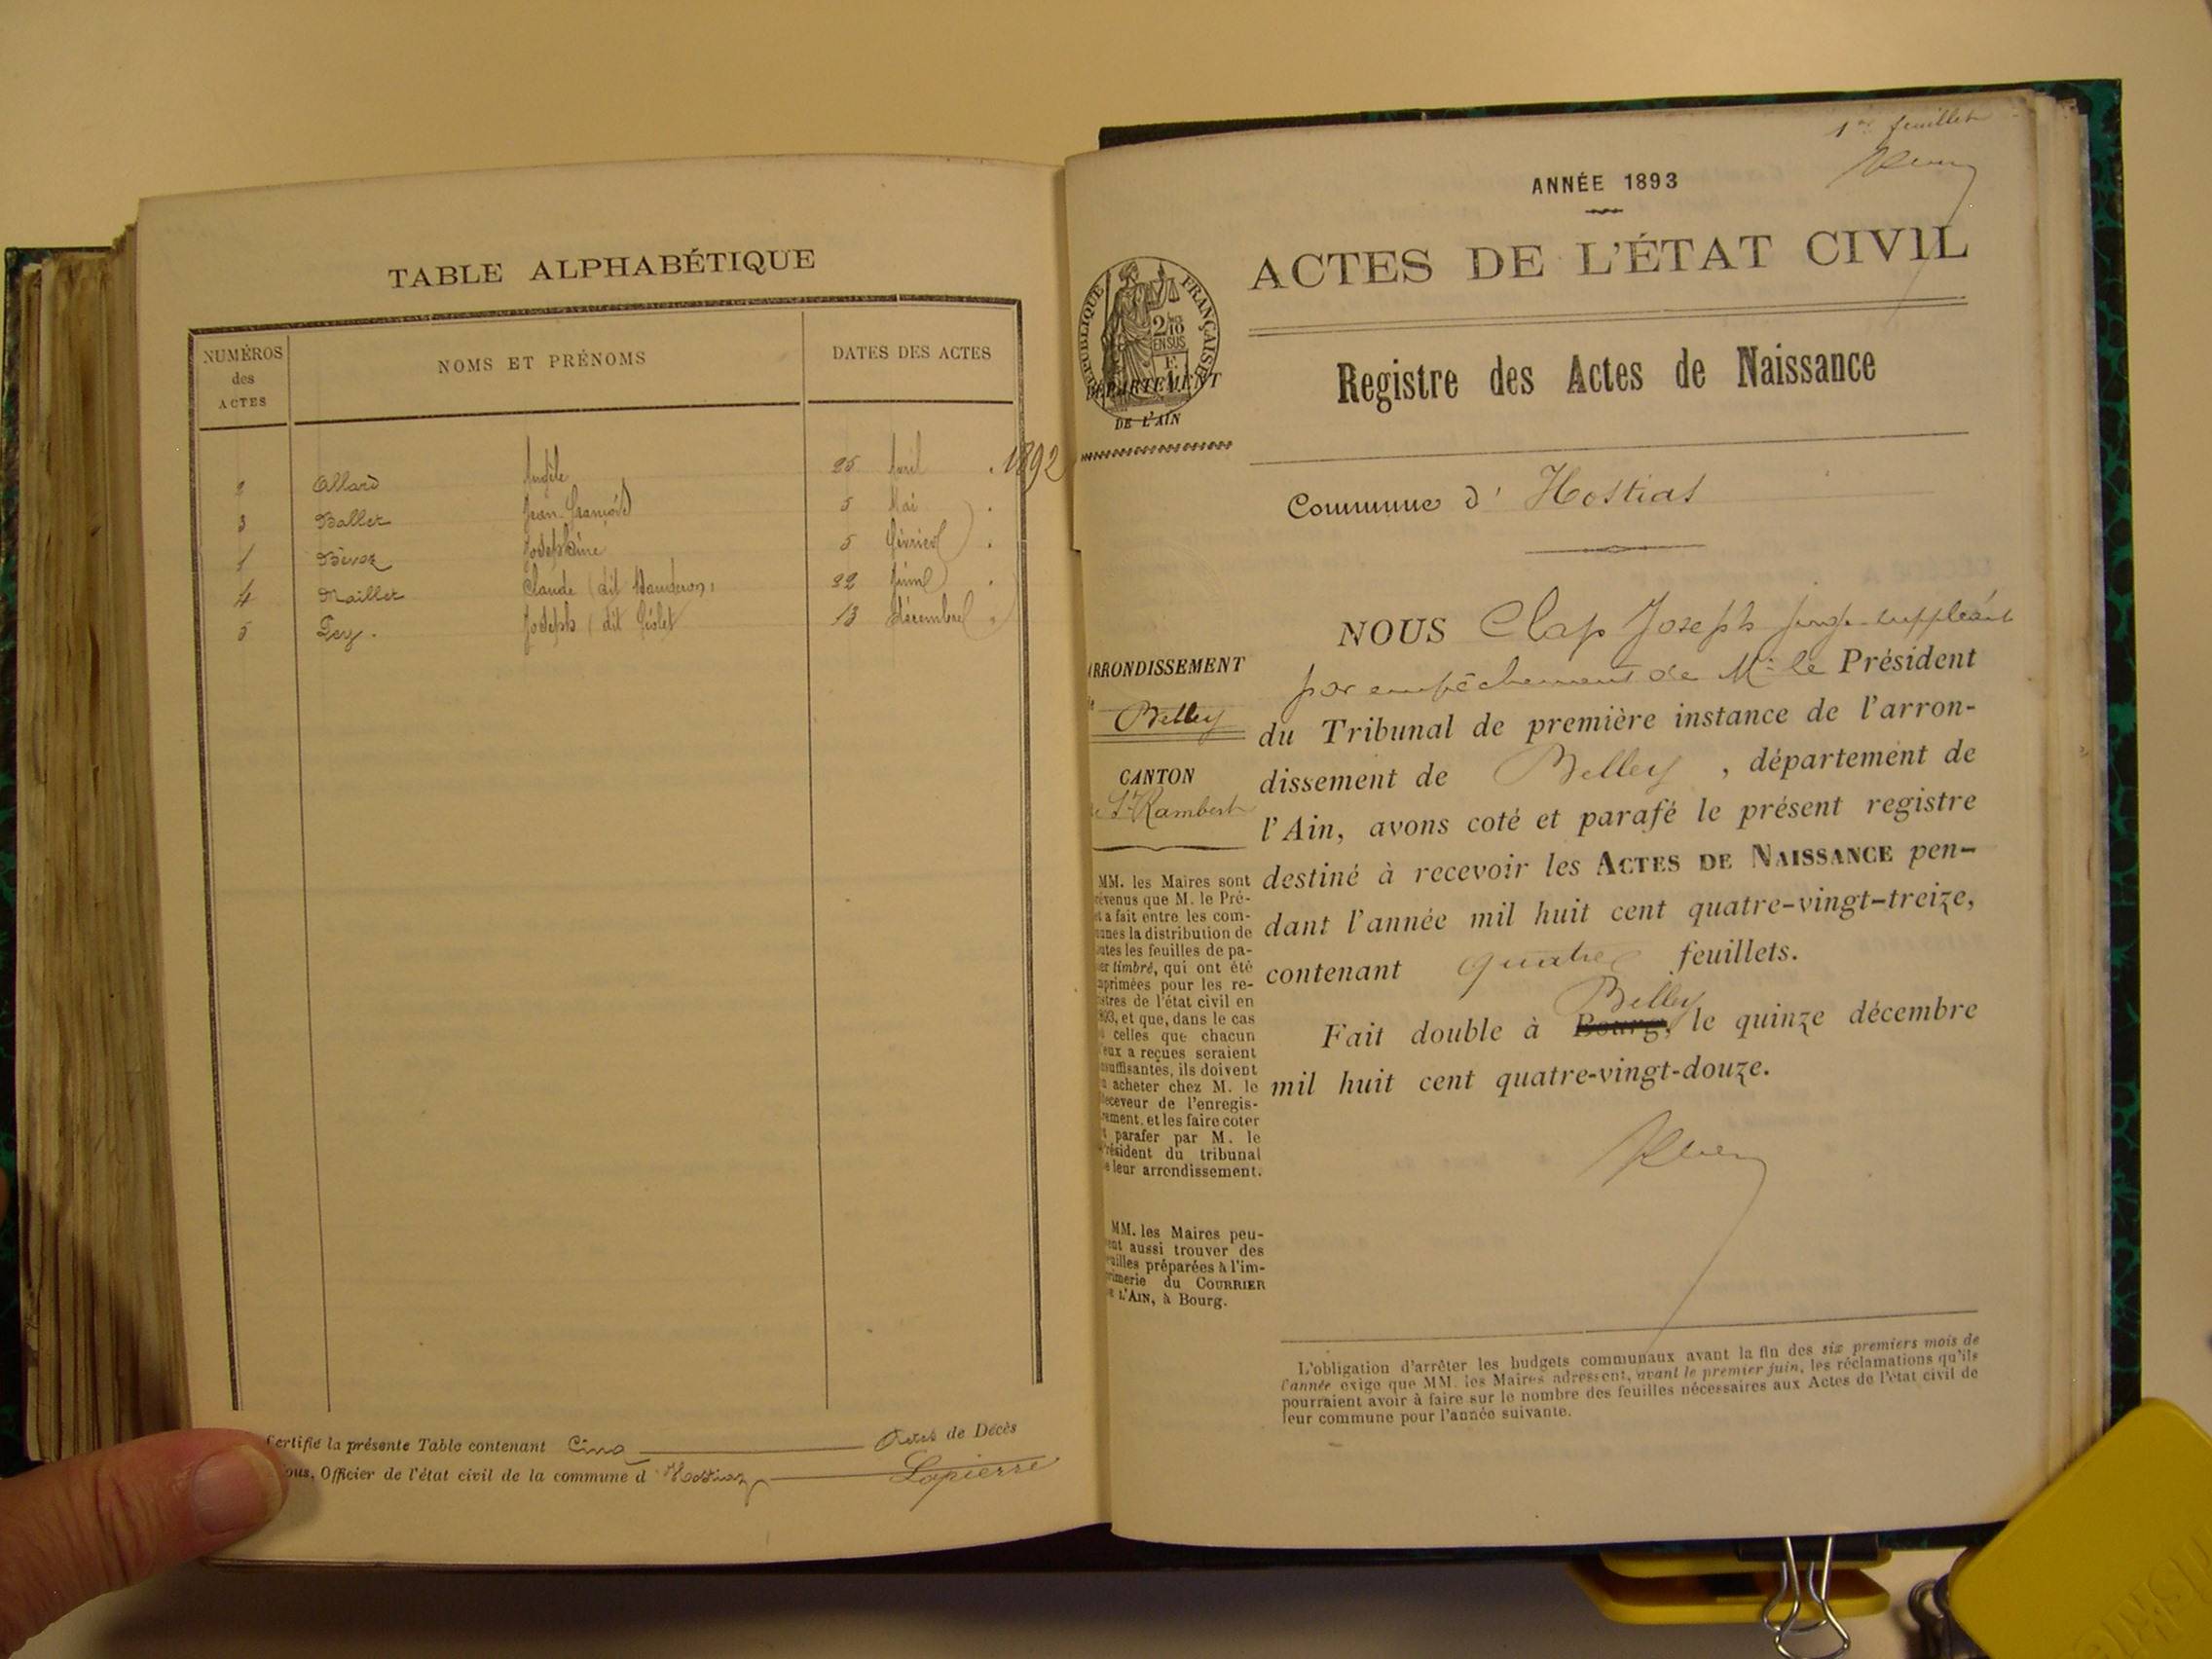 TABLE ALPHABÉTIQUE
NUMÉROS
des
ACTES
NOMS ET PRÉNOMS
DATES DES ACTES
2 Allard Angèle 25 Avril . 1892
3 Ballet Jean-François 5 Mai "
1 Joséphine 5 Février "
4 Maillet Claude (dit 22 "
5 Joseph (dit 13 décembre "
Certifié la présente Table contenant Cinq Actes de Décès
ous, Officier de l'état civil de la commune d Hostiaz
Lapierre
1er feuillet
ANNÉE 1893
ACTES DE L'ÉTAT CIVIL
RÉPUBLIQUE FRANÇAISE
2/10
EN SUS
DÉPARTEMENT
DE L'AIN
Registre des Actes de Naissance
Commune d' Hostias
NOUS Clap Joseph juge-suppléant
par empêchement de Mr le Président
du Tribunal de première instance de l'arron-
dissement de Belley, département de
l'Ain, avons coté et parafé le présent registre
destiné à recevoir les ACTES DE NAISSANCE pen-
dant l'année mil huit cent quatre-vingt-treize,
contenant quatre feuillets.
Belley
Fait double à Bourg, le quinze décembre
mil huit cent quatre-vingt-douze.
RRONDISSEMENT
Belley
CANTON
St Rambert
MM. les Maires sont
évenus que M. le Pré-
t a fait entre les com-
unes la distribution de
utes les feuilles de pa-
er timbré, qui ont été
primées pour les re-
stres de l'état civil en
93, et que, dans le cas
celles que chacun
eux a reçues seraient
suffisantes, ils doivent
acheter chez M. le
eceveur de l'enregis-
rement, et les faire coter
t parafer par M. le
résident du tribunal
e leur arrondissement.
MM. les Maires peu-
ent aussi trouver des
uilles préparées à l'im-
primerie du COURRIER
e L'AIN, à Bourg.
L'obligation d'arrêter les budgets communaux avant la fin des six premiers mois de
l'année exige que MM. les Maires adressent, avant le premier juin, les réclamations qu'ils
pourraient avoir à faire sur le nombre des feuilles nécessaires aux Actes de l'état civil de
leur commune pour l'année suivante.